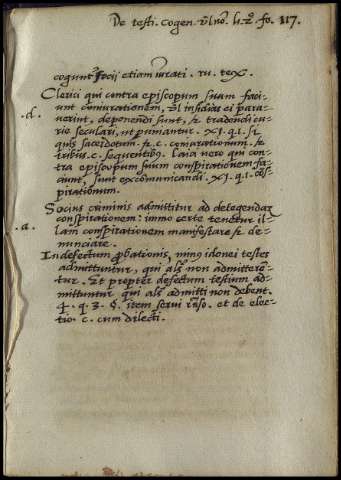 De testi. cogen. vl no. li. 2. fo. 117.
cogunt socij etiam iurati. ru. tex.
Clerici qui contra episcopum suum faci-
unt coniurationem, vl insidias ei para-
.d. uerint, deponendi sunt, & tradendi cu-
rie seculari, ut puniantur. XI. q. I. si
quis sacerdotum. & c. coniurationum. &
tribus c. sequentibus. Laici vero qui con-
tra episcopum suum conspirationem fa-
ciunt, sunt excommunicandi. XI. q. I. cons-
pirationum.
Socius criminis admittitur ad delegendam
conspirationem: immo certe tenetur il-
.a. lam conspirationem manifestare & de-
nunciare.
In defectum probationis, minus idonei testes
admittuntur, qui als non admittere-
tur. Et propter defectum testium ad-
mittuntur qui als admitti non debent.
4. q. 3. §. item serui. et de elec-
tio. c. cum dilecti.